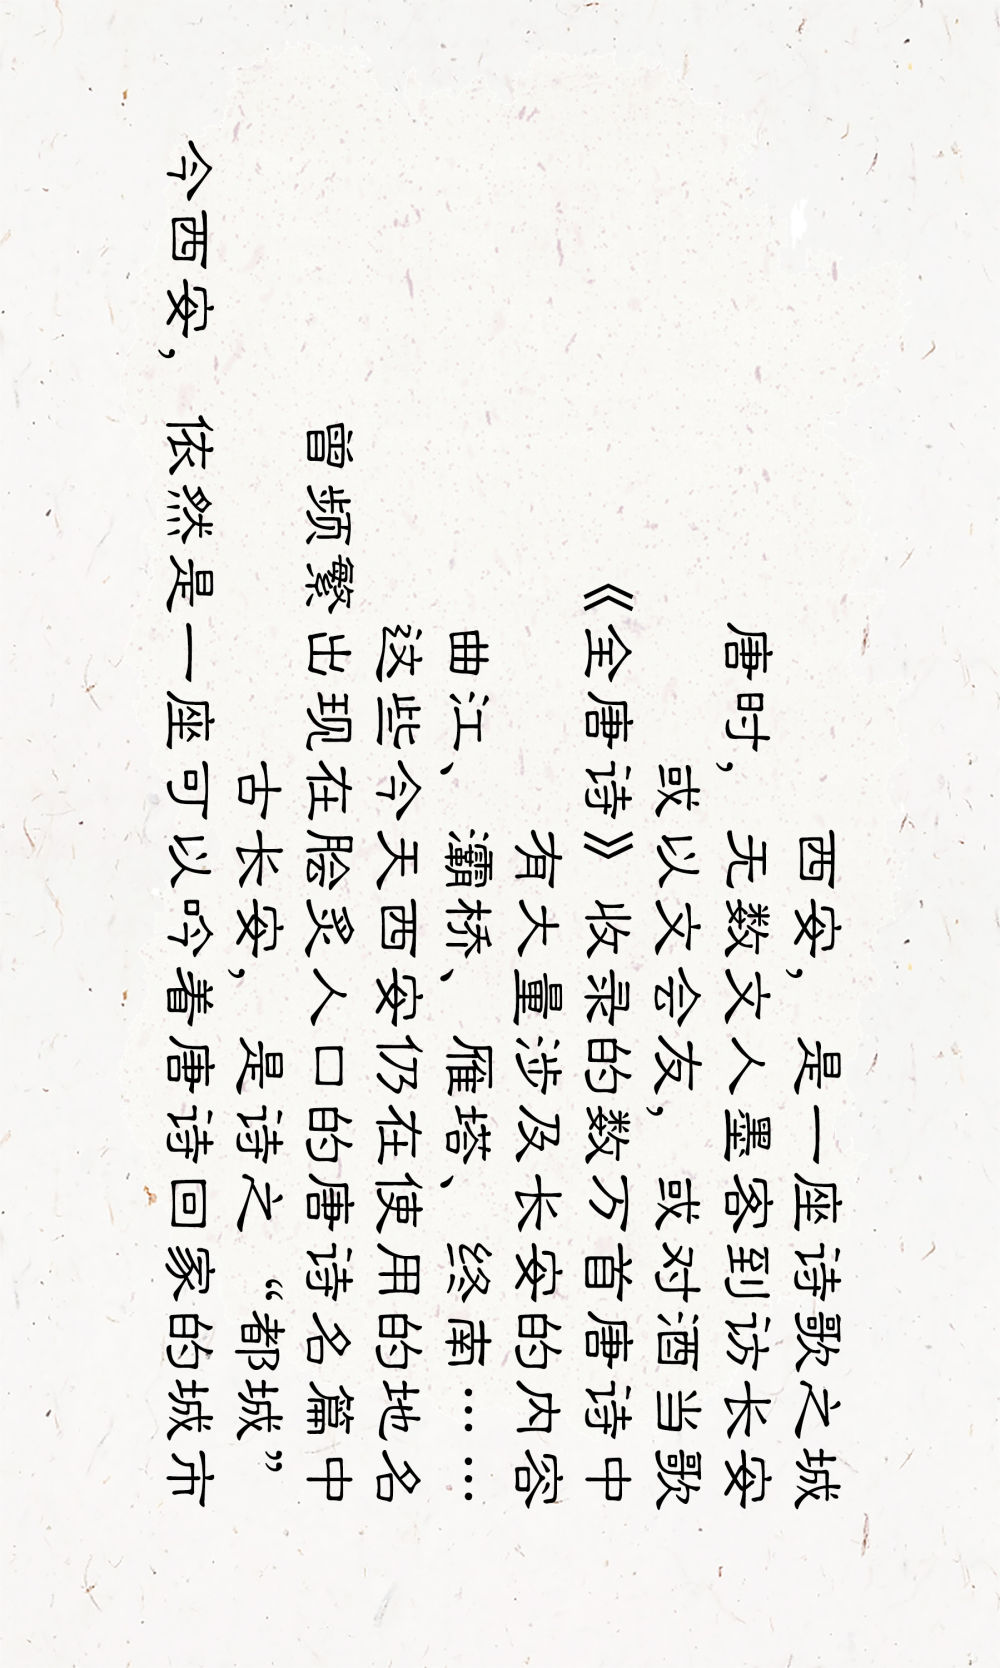 西安，是一座诗歌之城
唐时，无数文人墨客到访长安
或以文会友，或对酒当歌
《全唐诗》收录的数万首唐诗中
有大量涉及长安的内容
曲江、灞桥、雁塔、终南……
这些今天西安仍在使用的地名
曾频繁出现在脍炙人口的唐诗名篇中
古长安，是诗之“都城”
今西安，依然是一座可以吟着唐诗回家的城市